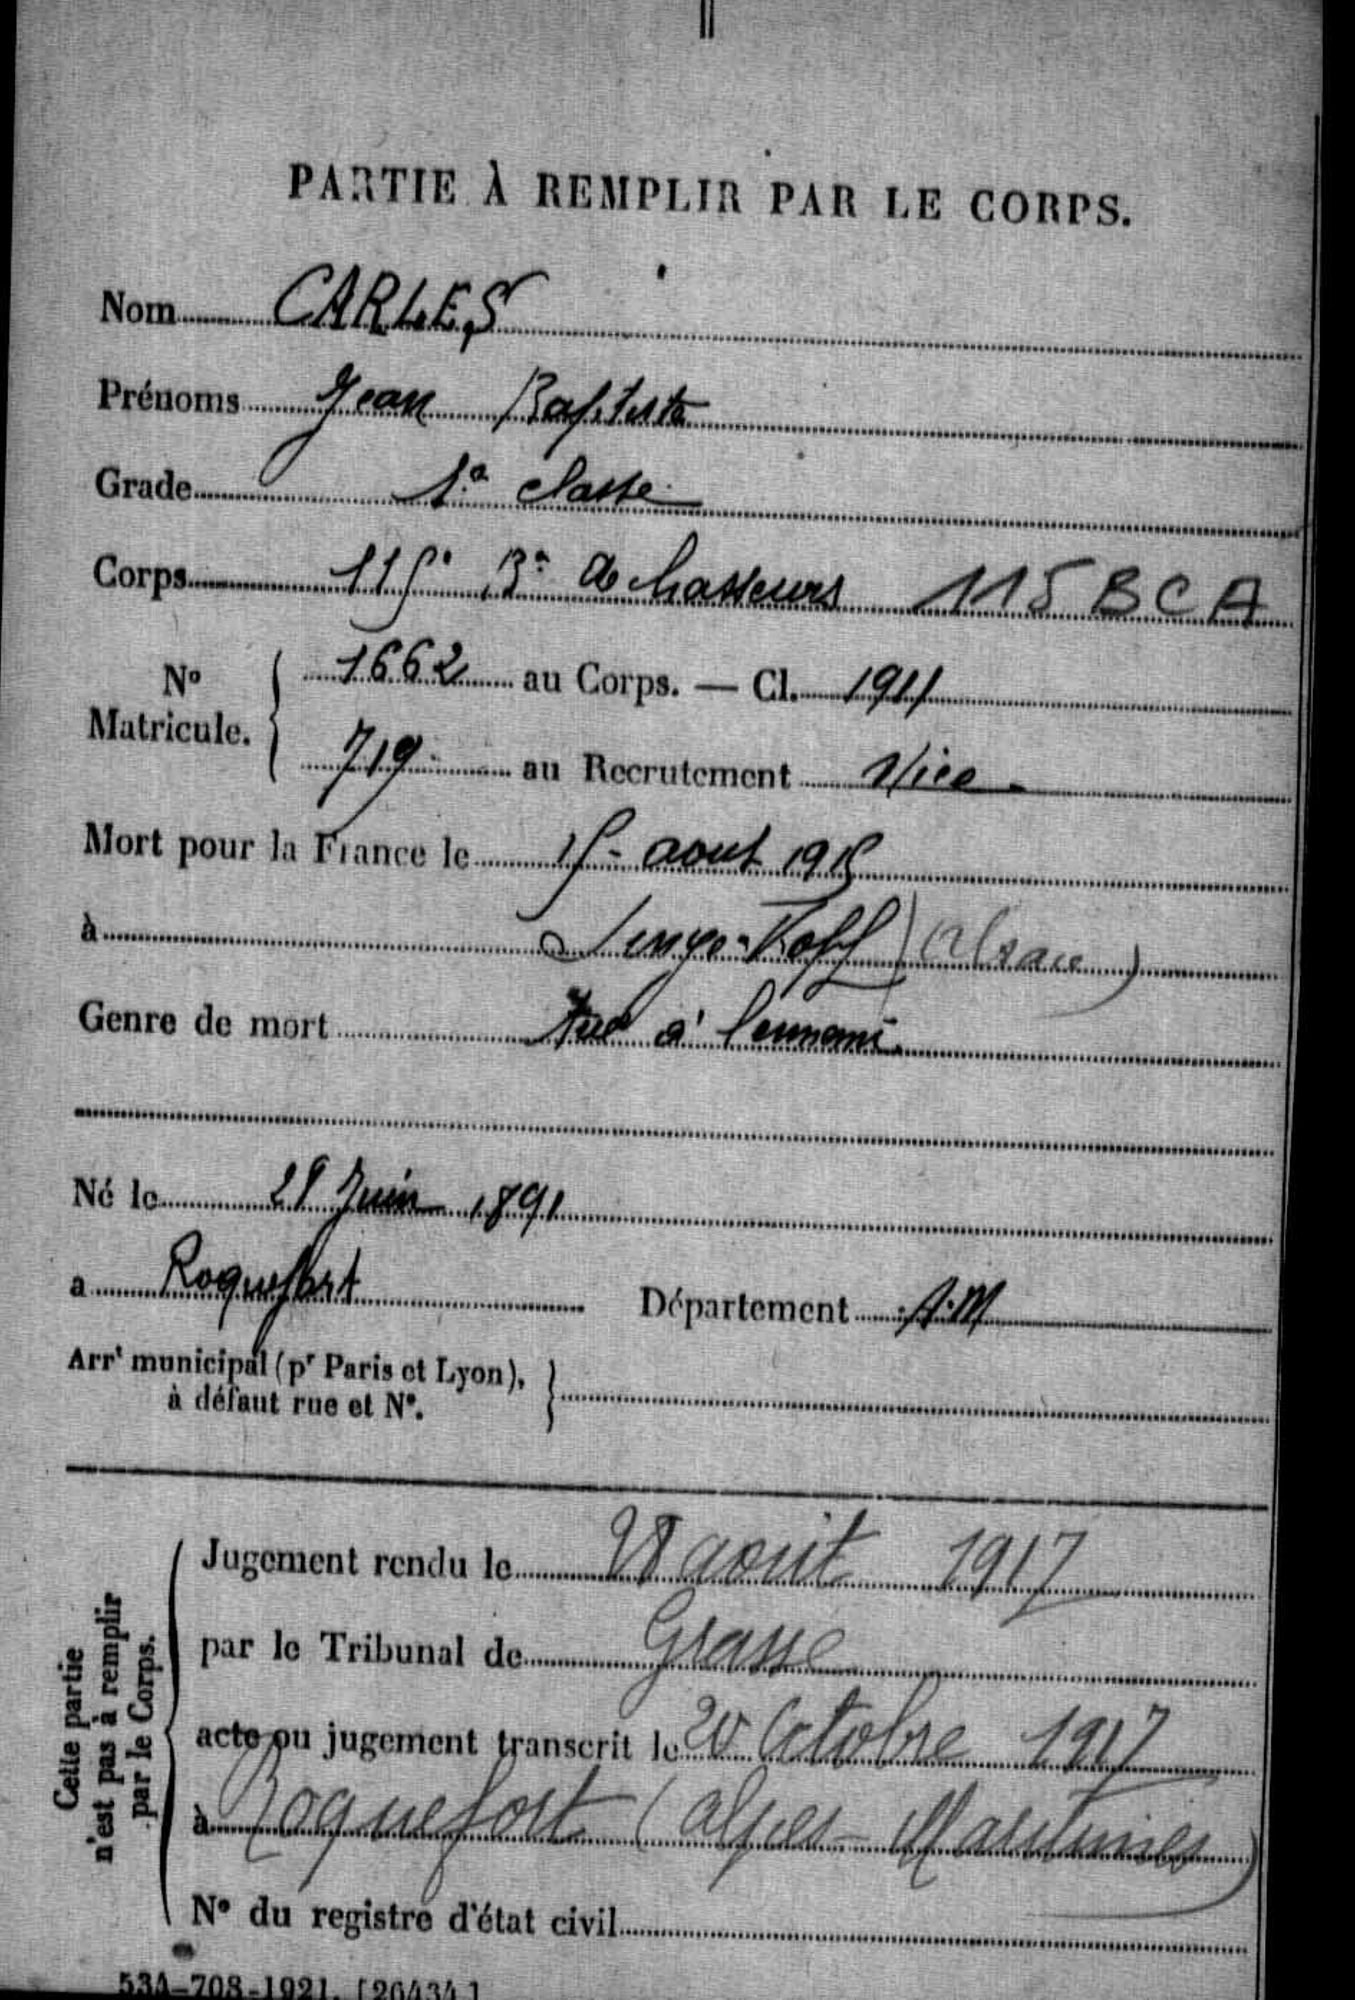 PARTIE À REMPLIR PAR LE CORPS.
Nom CARLES
Prénoms Jean Baptiste
Grade 1e classe
Corps 115e Bn de Chasseurs 115 BCA
No Matricule. 1662 au Corps. — Cl. 1911
719 au Recrutement Nice
Mort pour la France le 15 aout 1915
à Linge-Kopf (Alsace)
Genre de mort Tué à l'ennemi
Né le 28 Juin 1891
a Roquefort Département A.M
Arrt municipal (pr Paris et Lyon),
à défaut rue et No.
Cette partie
n'est pas à remplir
par le Corps.
Jugement rendu le 28 août 1917
par le Tribunal de Grasse
acte ou jugement transcrit le 20 Octobre 1917
à Roquefort (Alpes-Maritimes)
No du registre d'état civil
534-708-1921. [26434.]